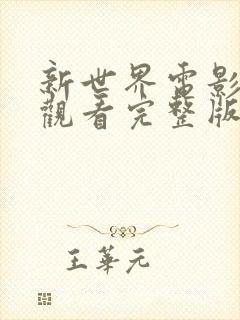 新世界電影
觀看完整版
王華元